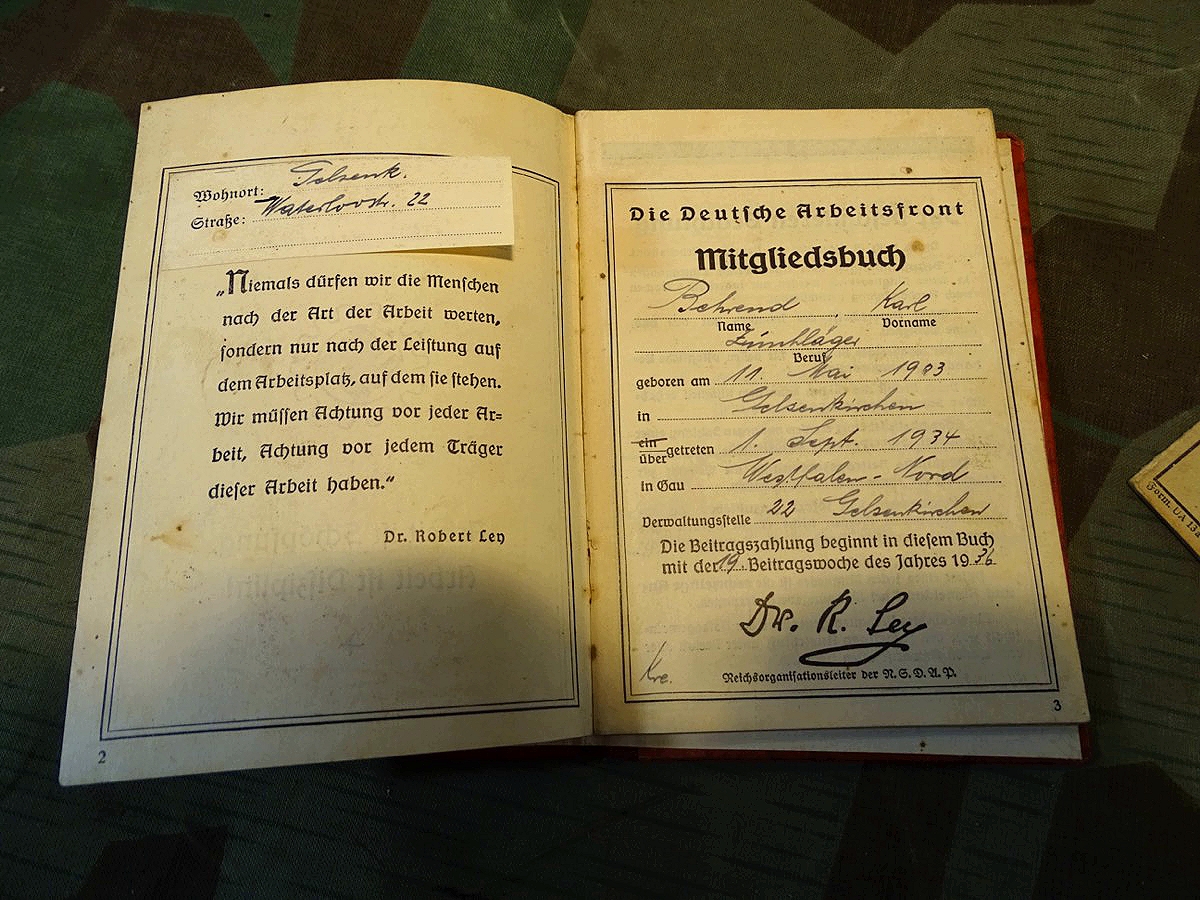 Wohnort: Gelsenk.
Straße: Waterloostr. 22
„Niemals dürfen wir die Menschen
nach der Art der Arbeit werten,
sondern nur nach der Leistung auf
dem Arbeitsplatz, auf dem sie stehen.
Wir müssen Achtung vor jeder Ar=
beit, Achtung vor jedem Träger
dieser Arbeit haben.“
Dr. Robert Ley
2
Die Deutsche Arbeitsfront
Mitgliedsbuch
Behrend, Karl
Name Vorname
Beruf
geboren am 11. Mai 1903
in Gelsenkirchen
ein
übergetreten 1. Sept. 1934
in Gau Westfalen-Nord
Verwaltungsstelle 22 Gelsenkirchen
Die Beitragszahlung beginnt in diesem Buch
mit der 19. Beitragswoche des Jahres 1936
Dr. R. Ley
Reichsorganisationsleiter der N.S.D.A.P.
3
Form. UA 13a